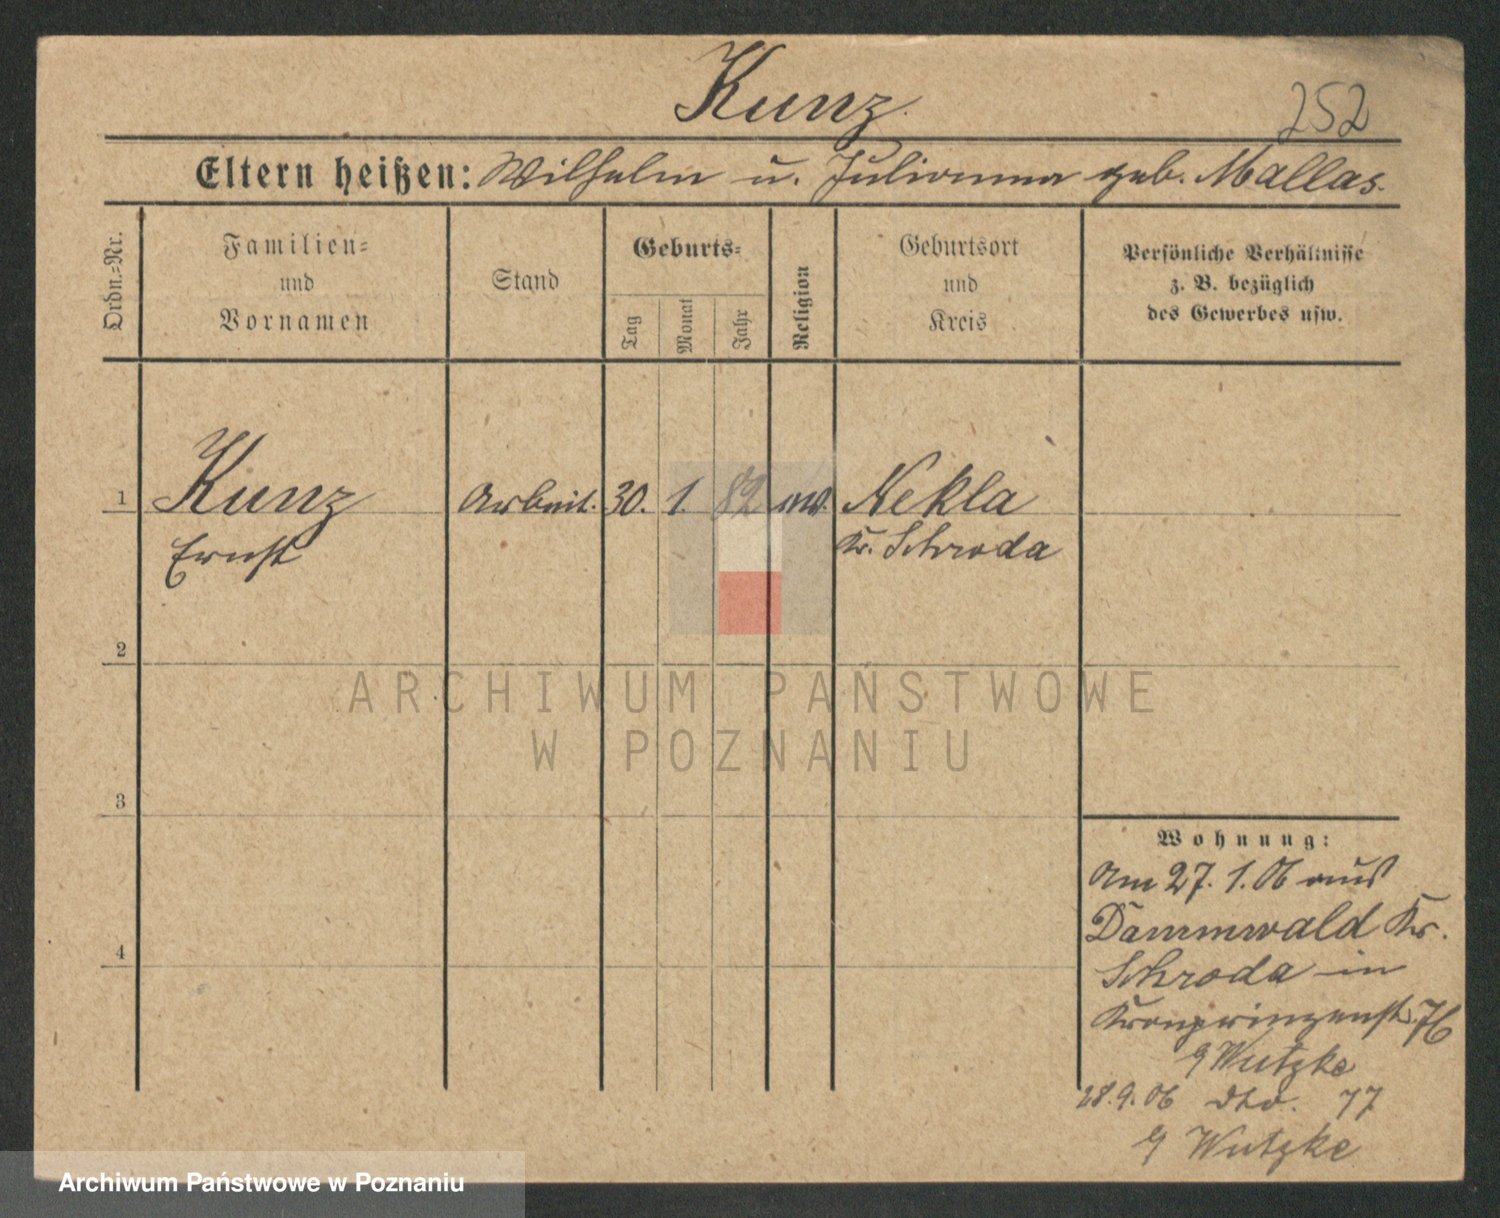 Kunz.
252
Eltern heißen: Wilhelm u. Julianna geb. Mallas.
Ordn.=Nr.
Familien=
und
Vornamen
Stand
Geburts=
Tag
Monat
Jahr
Religion
Geburtsort
und
Kreis
Persönliche Verhältnisse
z. B. bezüglich
des Gewerbes usw.
1
Kunz
Ernst
Arbeit.
30.
1.
82
Nekla
Kr. Schroda
2
3
4
Wohnung:
Am 27. 1. 06 aus
Dammwald Kr.
Schroda in
Kronprinzenstr.
Wutzke
28.9.06 dto. 77
Wutzke
ARCHIWUM PAŃSTWOWE
W POZNANIU
Archiwum Państwowe w Poznaniu